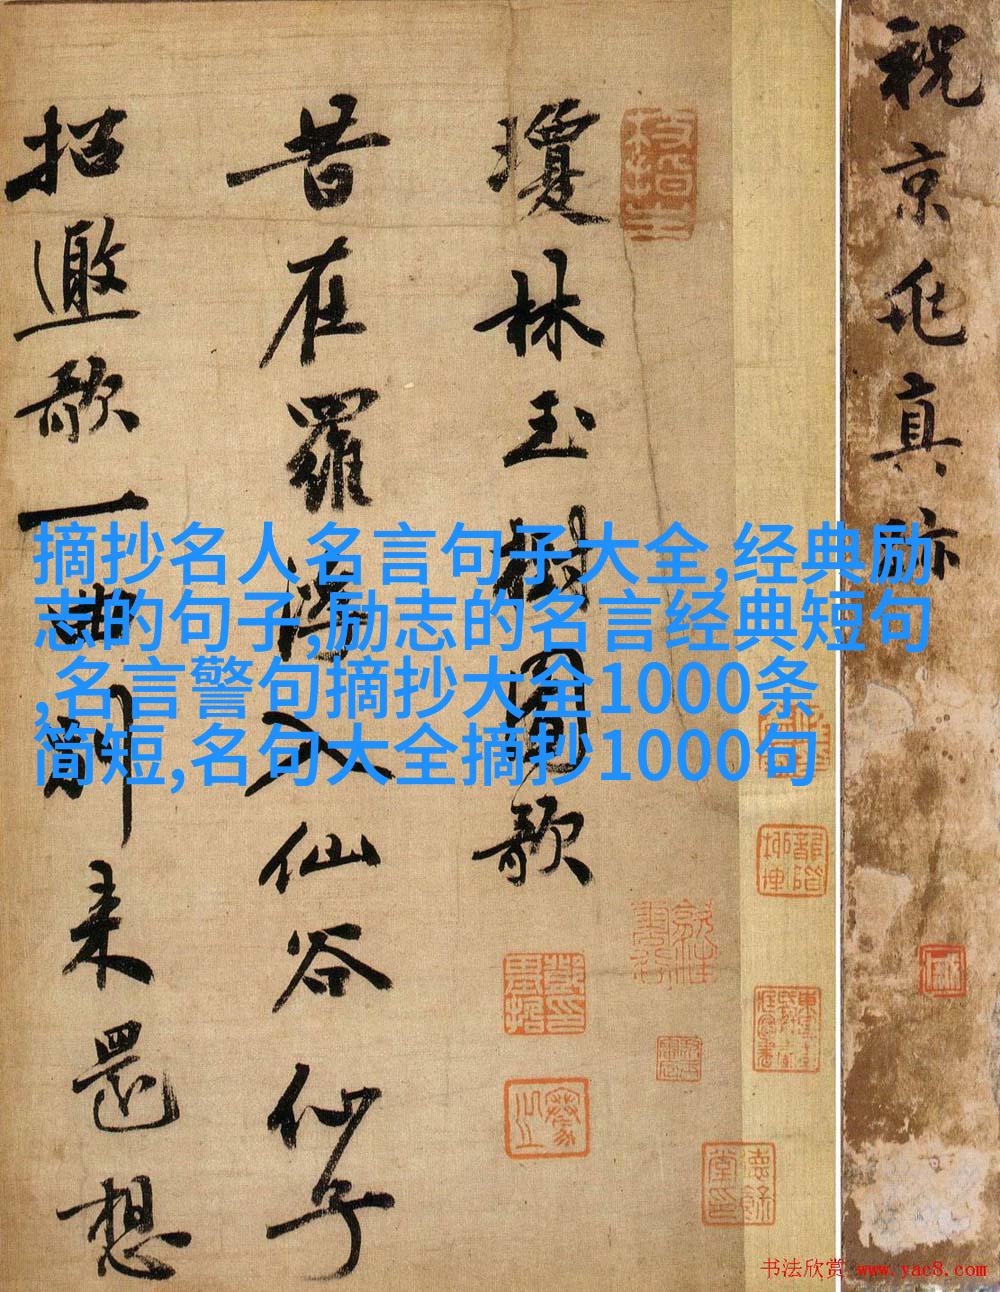 祝京兆真跡
瓊林玉樹圖歌
昔在羅浮入仙谷仙子
招邀歌一曲別来還想
枝指生
摘抄名人名言句子大全,经典励
志的句子,励志的名言经典短句
,名言警句摘抄大全1000条
简短,名句大全摘抄1000句
书法欣赏 www.yac8.com